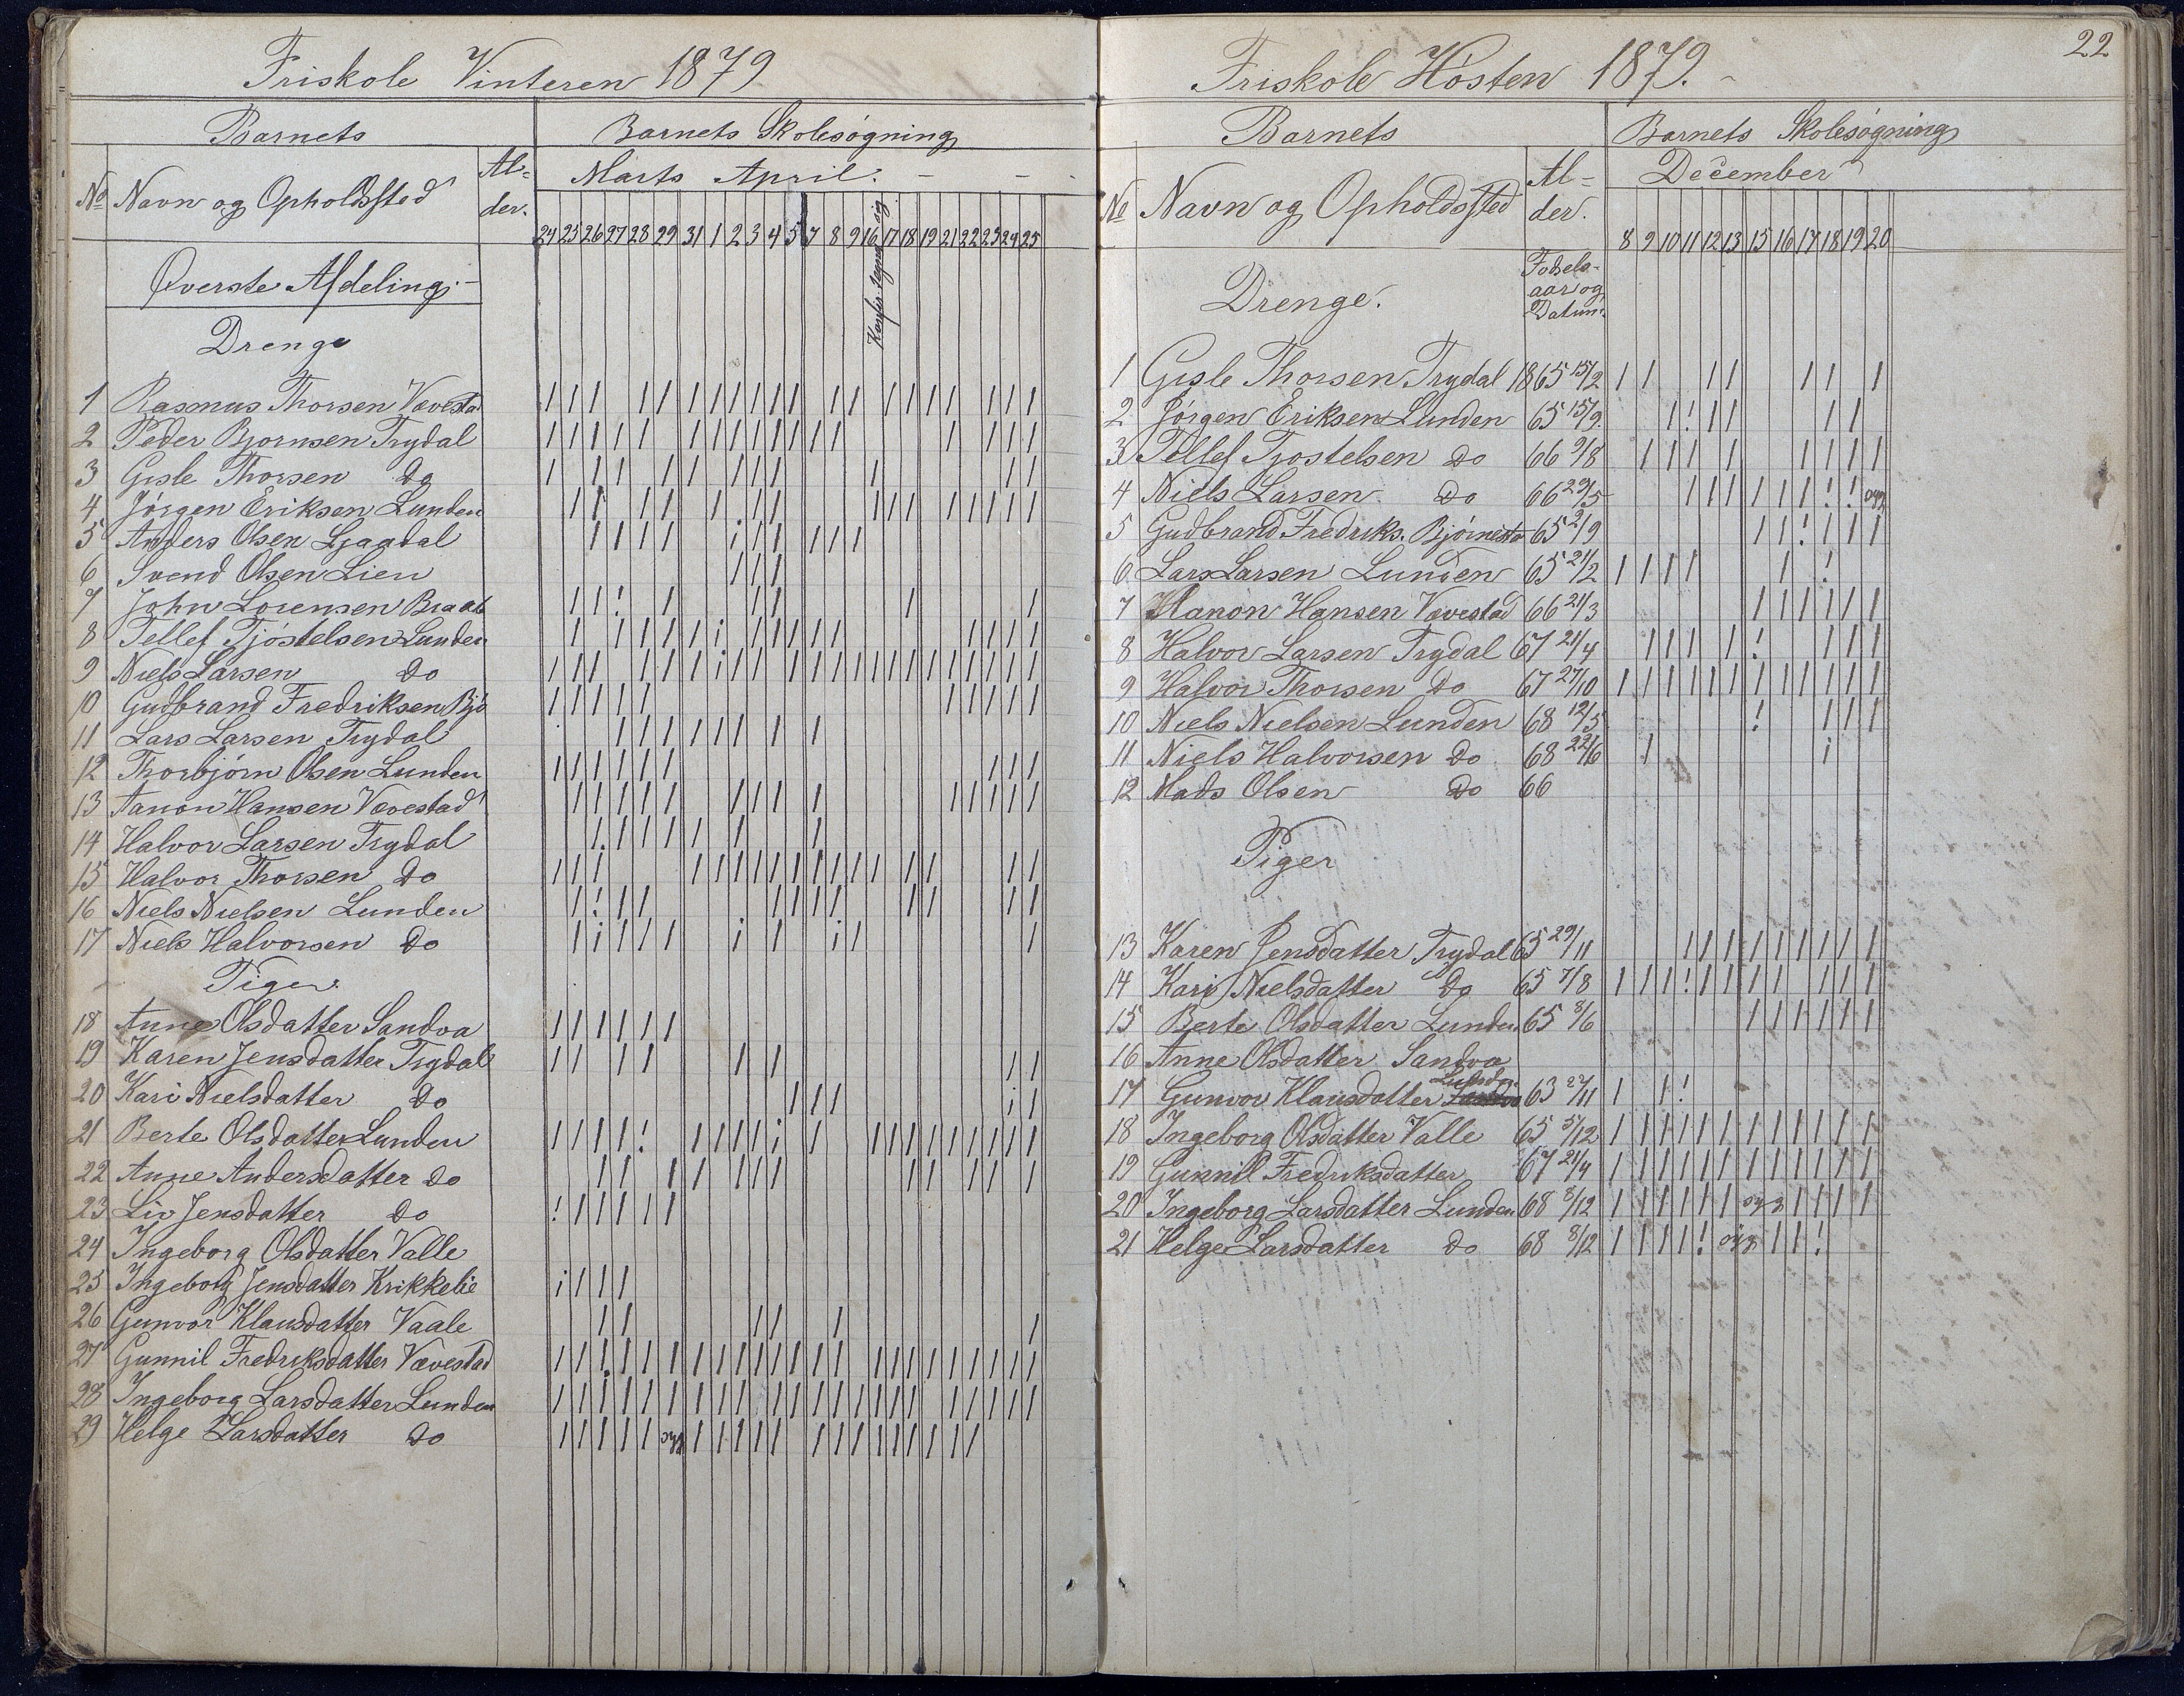 Friskole Vinteren 1879
Barnets
Barnets Skolesøgning
No Navn og Opholdssted
Al-
der.
Marts April.
24 25 26 27 28 29 31 1 2 3 4 5 7 8 9 16 17 18 19 21 22 23 24 25
Øverste Afdeling.
Drenge
1 Rasmus Thorsen Vævestad
2 Peder Bjørnsen Trydal
3 Gisle Thorsen Do
4 Jørgen Eriksen Lunden
5 Anders Olsen Ljaadal
6 Svend Olsen Lien
7 John Lorensen
8 Tellef Tjøstelsen Lunden
9 Niels Larsen Do
10 Gudbrand Fredriksen Bjø
11 Lars Larsen Trydal
12 Thorbjørn Olsen Lunden
13 Aanon Hansen Vævestad
14 Halvor Larsen Trydal
15 Halvor Thorsen Do
16 Niels Nielsen Lunden
17 Niels Halvorsen Do
Piger
18 Anne Olsdatter Sandva
19 Karen Jensdatter Trydal
20 Kari Nielsdatter Do
21 Berte Olsdatter Lunden
22 Anne Andersdatter Do
23 Liv Jensdatter Do
24 Ingeborg Olsdatter Valle
25 Ingeborg Jensdatter Krikkelie
26 Gunvor Klausdatter Vaale
27 Gunnil Fredriksdatter Vævestad
28 Ingeborg Larsdatter Lunden
29 Helge Larsdatter Do
22
Friskole Høsten 1879.
Barnets
Barnets Skolesøgning
No Navn og Opholdssted
Al-
der.
December
8 9 10 11 12 13 15 16 17 18 19 20
Fødsels-
aar og
Datum.
Drenge.
1 Gisle Thorsen Trydal 1865 15/2
2 Jørgen Eriksen Lunden 65 15/9
3 Tellef Tjostelsen Do 66 9/8
4 Niels Larsen Do 66 29/5 syg
5 Gudbrand Fredriks. Bjørnesta 65 2/9
6 Lars Larsen Lunden 65 21/2
7 Hanon Hansen Vævestad 66 21/3
8 Halvor Larsen Trydal 67 21/4
9 Halvor Thorsen Do 67 27/10
10 Niels Nielsen Lunden 68 12/5
11 Niels Halvorsen Do 68 22/6
12 Mads Olsen Do 66
Piger
13 Karen Jensdatter Trydal 65 29/11
14 Kari Nielsdatter Do 65 7/8
15 Berte Olsdatter Lunden 65 8/6
16 Anne Olsdatter Sandva
17 Gunvor Klausdatter 63 27/11
18 Ingeborg Olsdatter Valle 65 5/12
19 Gunnil Fredriksdatter 67 21/4
20 Ingeborg Larsdatter Lunden 68 8/12 syg
21 Helge Larsdatter Do 68 8/12 syg